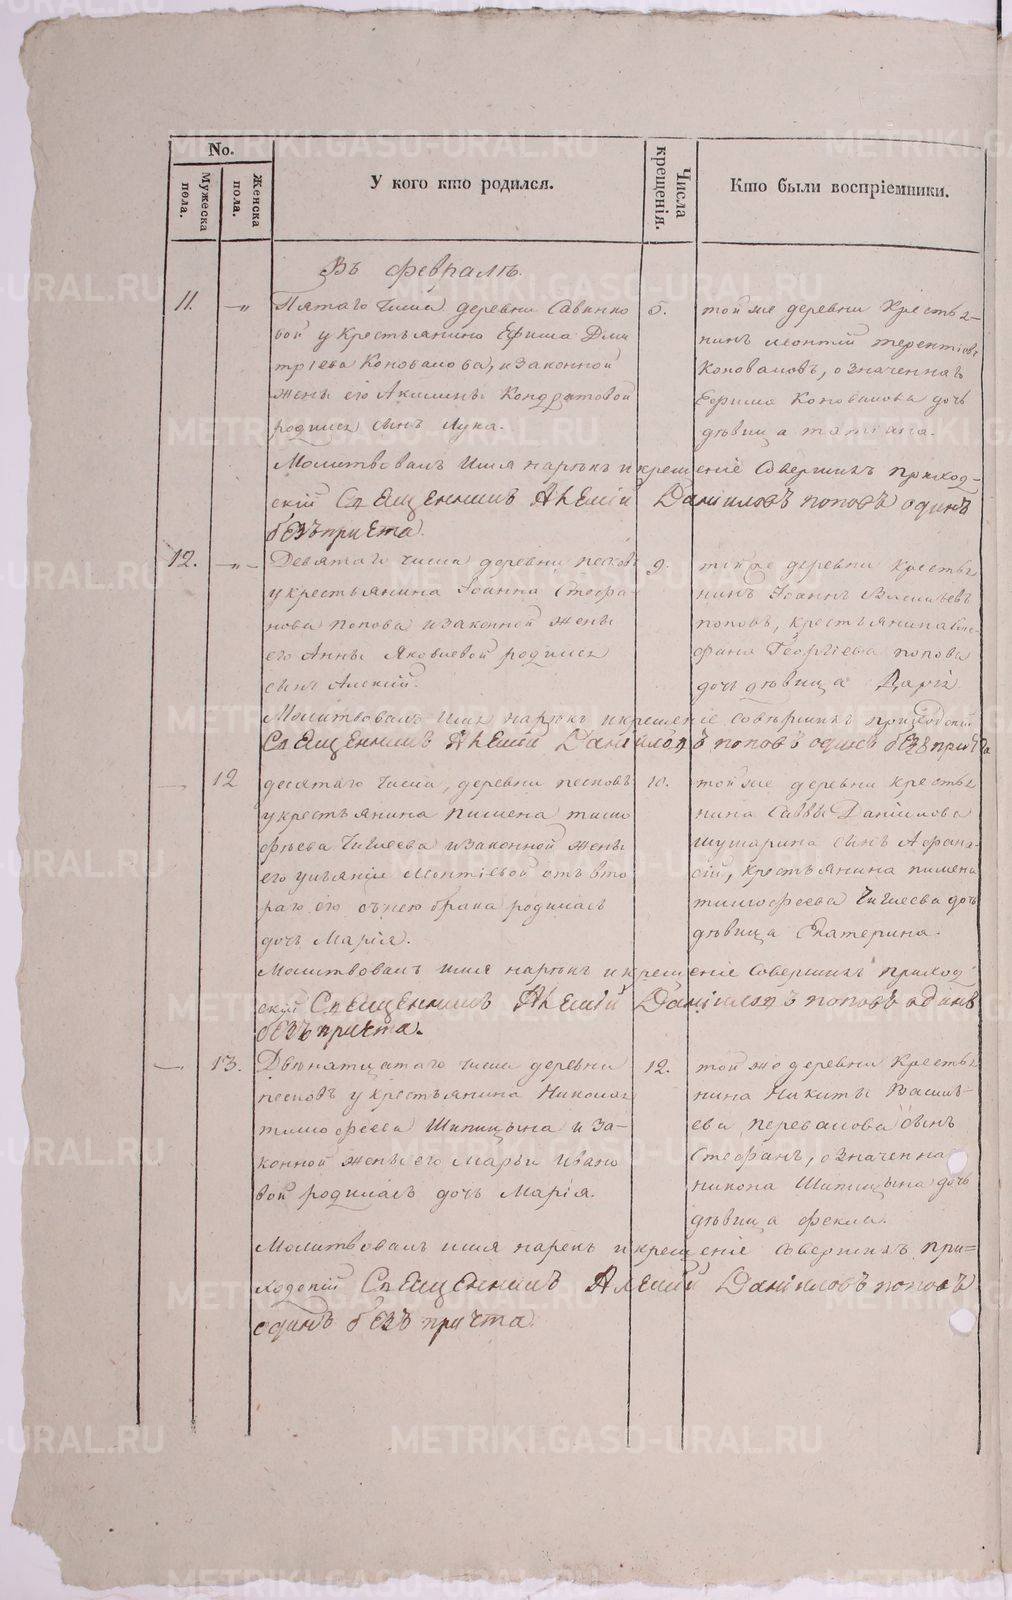 No.
Мужеска пола.
Женска пола.
У кого кто родился.
Числа крещенія.
Кто были воспріемники.
Въ февралѣ.
11. -„- Пятаго числа деревни Савинко
вой у крестьянина Ефима Дми
тріева Коновалова, и законной
жены его Акилины Кондратовой
родился сынъ Лука.
5. той же деревни крестья-
нинъ Леонтій Терентіевъ
Коноваловъ, означеннаго
Ефима Коновалова дочь
дѣвица Татіана.
Молитвовалъ имя нарѣкъ и крещеніе совершилъ приход-
скій Священникъ Алексій Даніиловъ Поповъ одинъ
безъ причта.
12. -„- Девятаго числа деревни Песковъ
у крестьянина Іоанна Стефа-
нова Попова и законной жены
его Анны Яковлевой родился
сынъ Алексій.
9. той же деревни крестья
нинъ Іоаннъ Васильевъ
Поповъ, крестьянина Сте-
фана Георгіева Попова
дочь дѣвица Дарія
Молитвовалъ имя нарѣкъ и крещеніе совершилъ приходскій
Священникъ Алексій Даніиловъ Поповъ одинъ безъ причта
12 десятаго числа, деревни Песковъ
у крестьянина Пимена Тимо
фѣева Чигвеева и законной жены
его Улѣяніи Леонтіевой отъ вто
раго его съ нею брака родилась
дочь Марія.
10. той же деревни крестья
нина Саввы Даніилова
Шушарина сынъ Афана-
сій, крестьянина Пимена
Тимофеева дочь
дѣвица Екатерина.
Молитвовалъ имя нарѣкъ и крещеніе совершилъ приход
скій Священникъ Алексій Даніиловъ Поповъ одинъ
безъ причта.
13. Двѣнатцатаго числа деревни
Песковъ у крестьянина Никона
Тимофеева Шипицына и за-
конной жены его Марьи Ивано
вой родилась дочь Марія.
12. той же деревни кресть
нина Никиты Василь-
ева Перевалова сынъ
Стефанъ, означенна
Никона Шипицына дочь
дѣвица Фекла.
Молитвовалъ имя нарекъ и крещеніе совершилъ при=
ходскій Священникъ Алексій Даніиловъ Поповъ
одинъ безъ причта.
METRIKI.GASO-URAL.RU